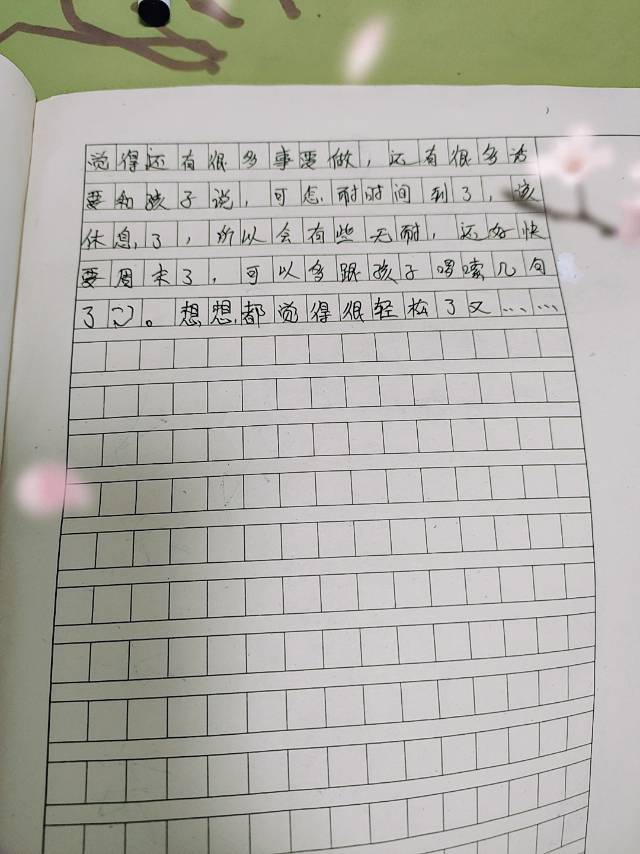 觉得还有很多事要做，还有很多话
要和孩子说，可怎耐时间到了，该
休息了，所以会有些无耐，还好快
要周末了，可以多跟孩子啰嗦几句
了。想想都觉得很轻松了又……